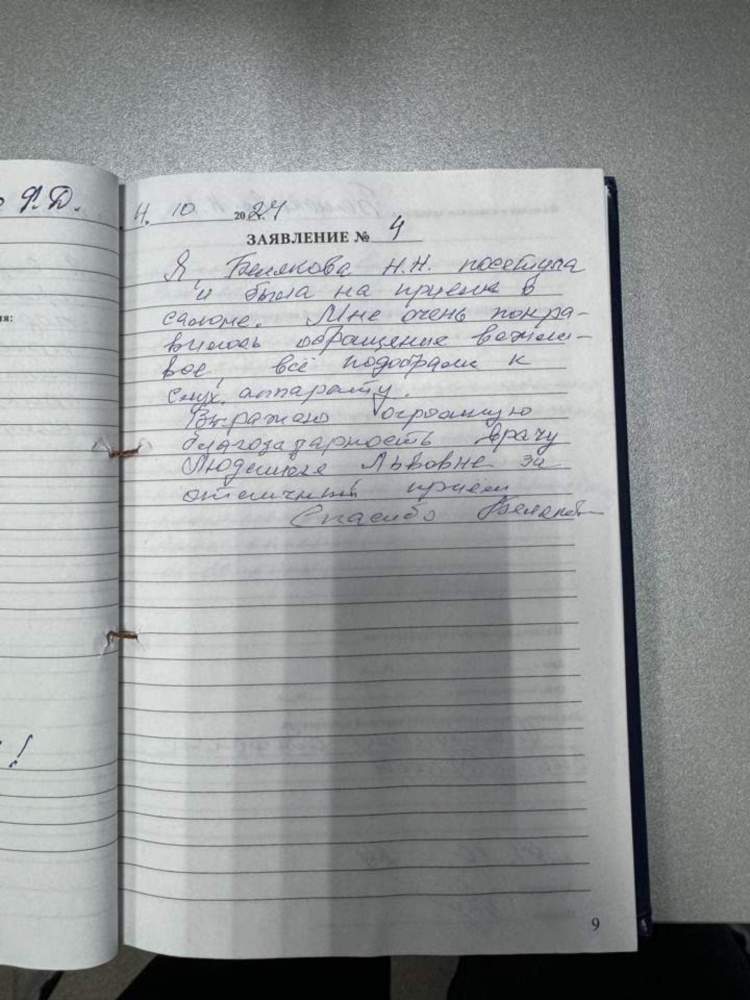 Ф.Д.
ия:
!
Н. 10 2024 г.
ЗАЯВЛЕНИЕ № 4
Я, Белякова Н.Н. посетила
и была на приеме в
салоне. Мне очень понра-
вилось обращение вежли-
вое, всё подобрали к
слух. аппарату.
Выражаю огромную
благозадарность врачу
Людмиле Львовне за
отличный прием
Спасибо Беляков
9